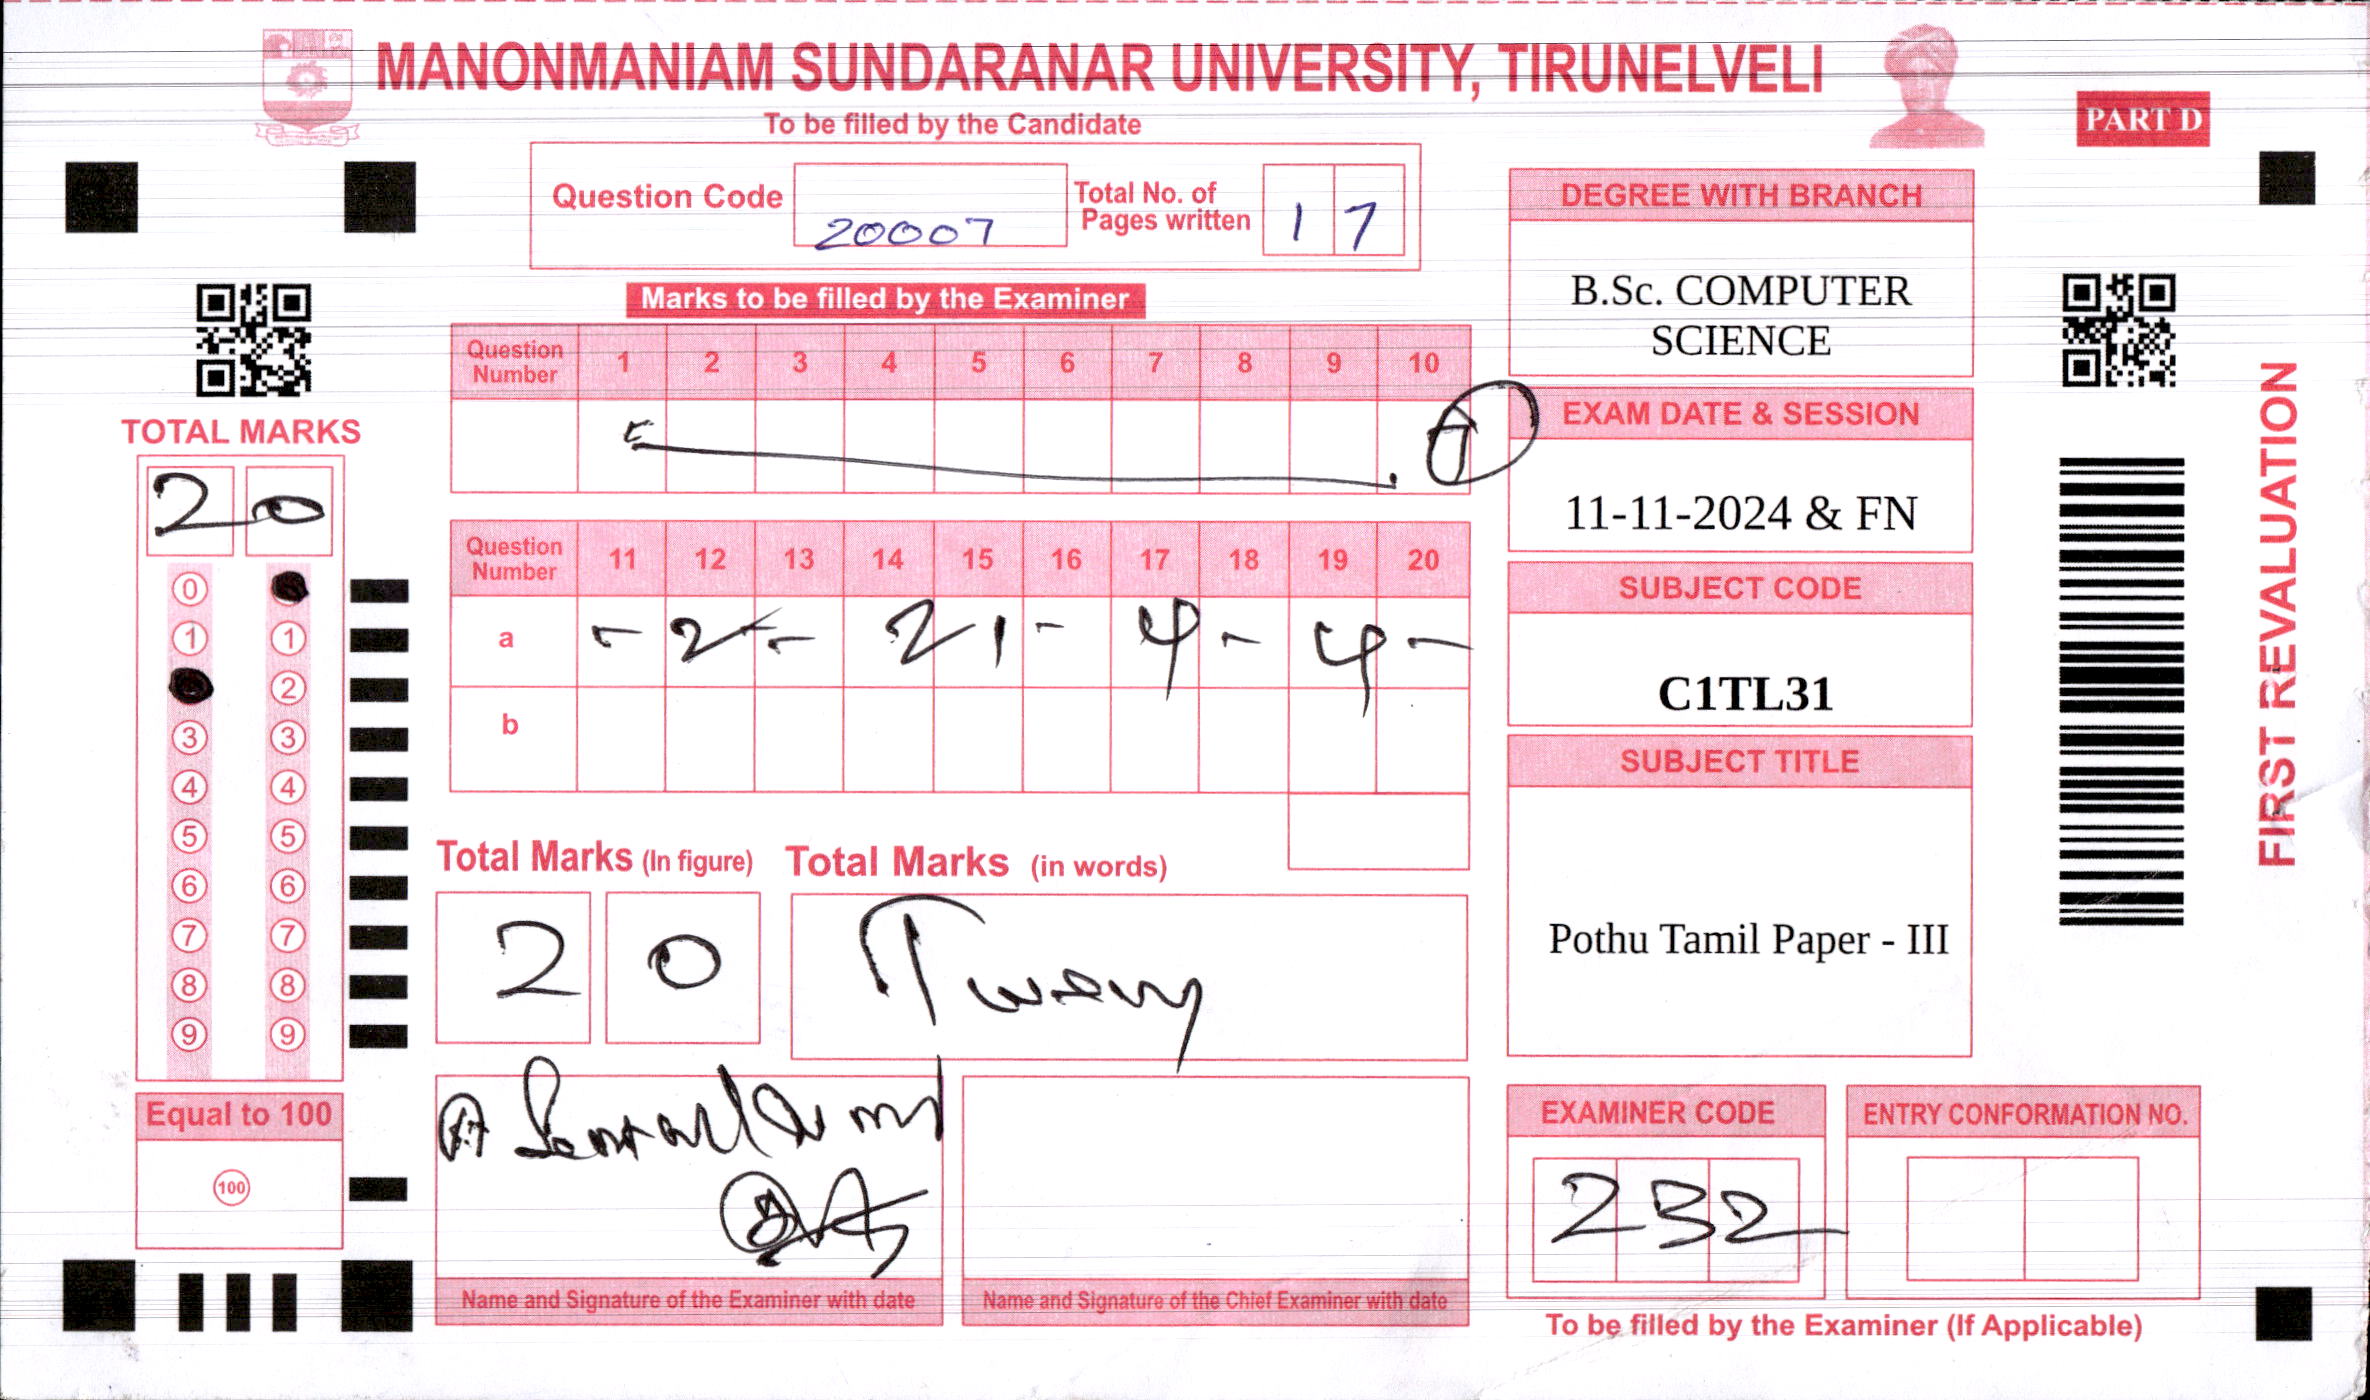 MANONMANIAM SUNDARANAR UNIVERSITY, TIRUNELVELI
To be filled by the Candidate
PART D
Question Code 20007 Total No. of Pages written 1 7
Marks to be filled by the Examiner
Question Number 1 2 3 4 5 6 7 8 9 10
7
Question Number 11 12 13 14 15 16 17 18 19 20
a - 2 - 2 1 - 4 - 4 -
b
Total Marks (In figure) Total Marks (in words)
2 0
Name and Signature of the Examiner with date
Name and Signature of the Chief Examiner with date
TOTAL MARKS
2 0
0
1 1
2
3 3
4 4
5 5
6 6
7 7
8 8
9 9
Equal to 100
100
DEGREE WITH BRANCH
B.Sc. COMPUTER
SCIENCE
EXAM DATE & SESSION
11-11-2024 & FN
SUBJECT CODE
C1TL31
SUBJECT TITLE
Pothu Tamil Paper - III
EXAMINER CODE
232
ENTRY CONFORMATION NO.
To be filled by the Examiner (If Applicable)
FIRST REVALUATION